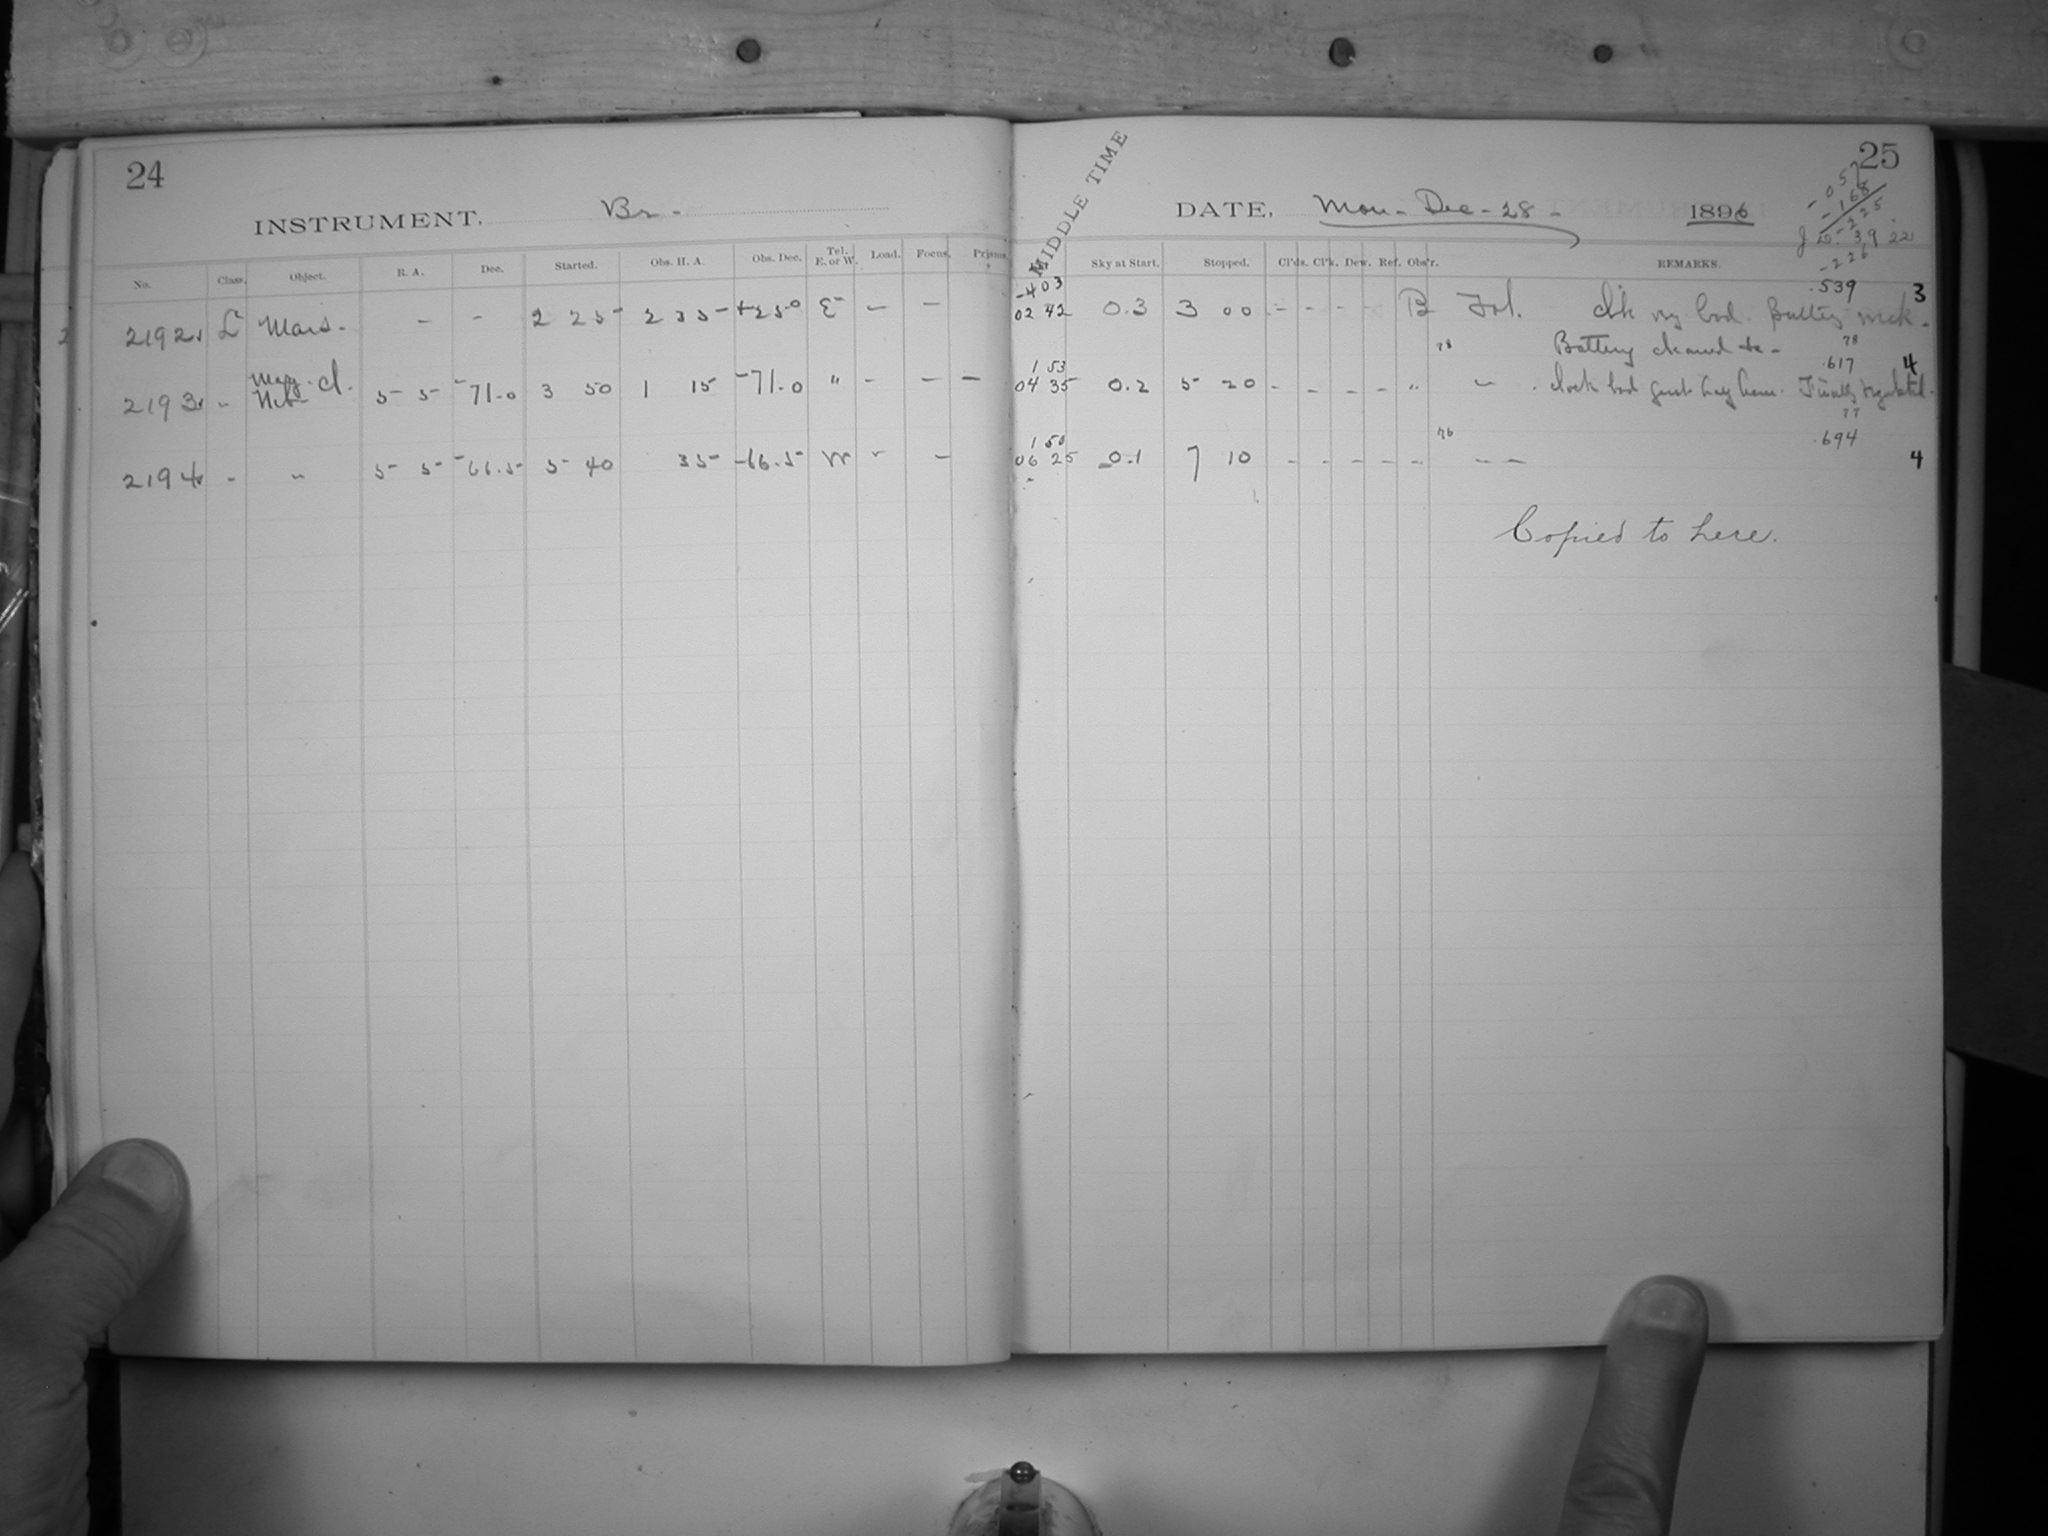 24
INSTRUMENT. Br.
No. Class. Object. R. A. Dec. Started. Obs. H. A. Obs. Dec. Tel. E. or W. Load. Focus. Prisms.
2192 L Mars. - - 2 25 2 35 +25.0 E - -
2193 " Mag. Cl. Neb. 5 5 -71.0 3 50 1 15 -71.0 " - - -
2194 " " 5 5 -66.5 5 40 35 -66.5 W " -
25
MIDDLE TIME
DATE, Mon. Dec. 28. 1896
-057
-168
-225
J.D. 3922
-226
Sky at Start. Stopped. Cl'ds. Cl'k. Dew. Ref. Obs'r. REMARKS.
-4 03 .539 3
02 42 0.3 3 00 - - - - B Fol. Clk very bad. Battery weak.
78 Battery cleaned &c. 78
1 53 .617 4
04 35 0.2 5 20 - - - - " " Clock bad first half hour. Finally regulated.
77
1 50 76 .694
06 25 0.1 7 10 - - - - - " - 4
Copied to here.